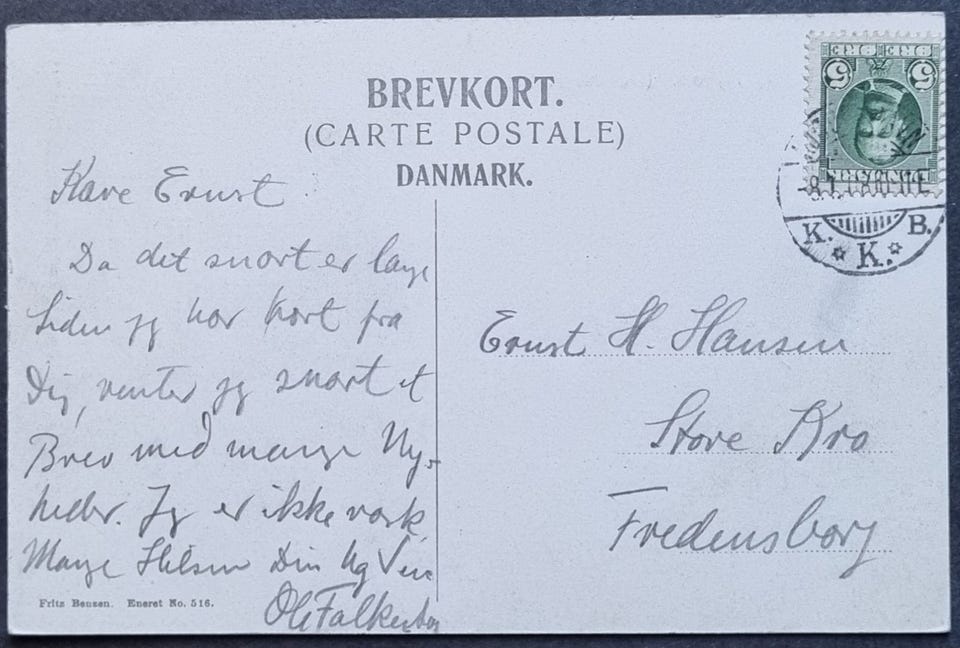 BREVKORT.
(CARTE POSTALE)
DANMARK.
Kære Ernst
Da det snart er længe
siden jeg har hørt fra
Dig, venter jeg snart et
Brev med mange Ny-
heder. Jeg er ikke rask
Mange Hilsen Din Ven
Ole Falken
Fritz Benzen. Eneret No. 516.
Ernst H. Hansen
Store Kro
Fredensborg
5 5
K. K. B.